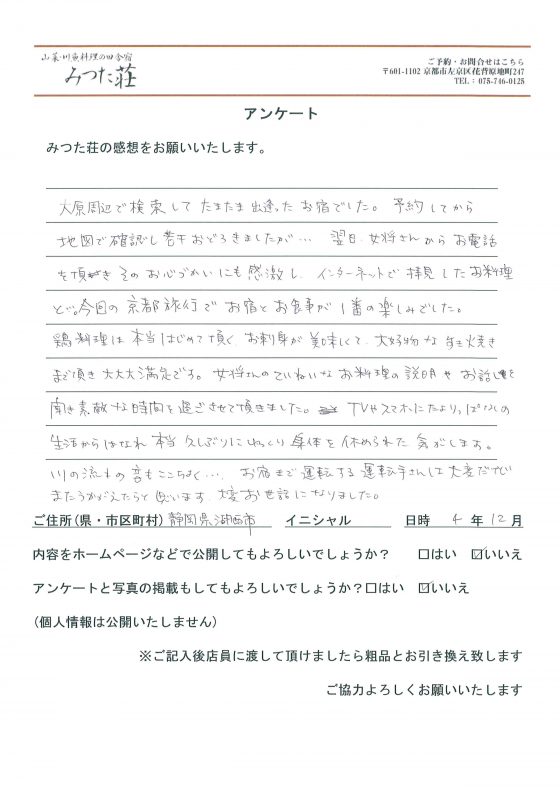 山菜・川魚料理の田舎宿
みつた荘
ご予約・お問合せはこちら
〒601-1102 京都市左京区花背原地町247
TEL: 075-746-0125
アンケート
みつた荘の感想をお願いいたします。
大原周辺で検索して たまたま出逢った お宿でした。 予約してから
地図で確認し若干おどろきましたが… 翌日、女将さんからお電話
を頂き そのお心づかいにも 感激し、インターネットで拝見したお料理
と。今回の京都旅行で お宿とお食事が 1番の楽しみでした。
鶏料理は 本当はじめて頂く お刺身が美味しくて、大好物な すき焼き
まで頂き 大大大満足です。女将さんのていねいなお料理の説明や お話を
聞き素敵な時間を過ごさせて頂きました。 TVやスマホにたよりっぱなしの
生活からはなれ 本当 久しぶりにゆっくり 身体を 休められた 気がします。
川の流れの音もここちよく… お宿まで運転する運転手さんは大変だけど
またうかがえたらと思います 大変お世話になりました。
ご住所(県・市区町村) 静岡県湖西市 イニシャル 日時 4 年 12 月
内容をホームページなどで公開してもよろしいでしょうか? □はい ☑いいえ
アンケートと写真の掲載もしてもよろしいでしょうか?□はい ☑いいえ
(個人情報は公開いたしません)
※ご記入後店員に渡して頂けましたら粗品とお引き換え致します
ご協力よろしくお願いいたします